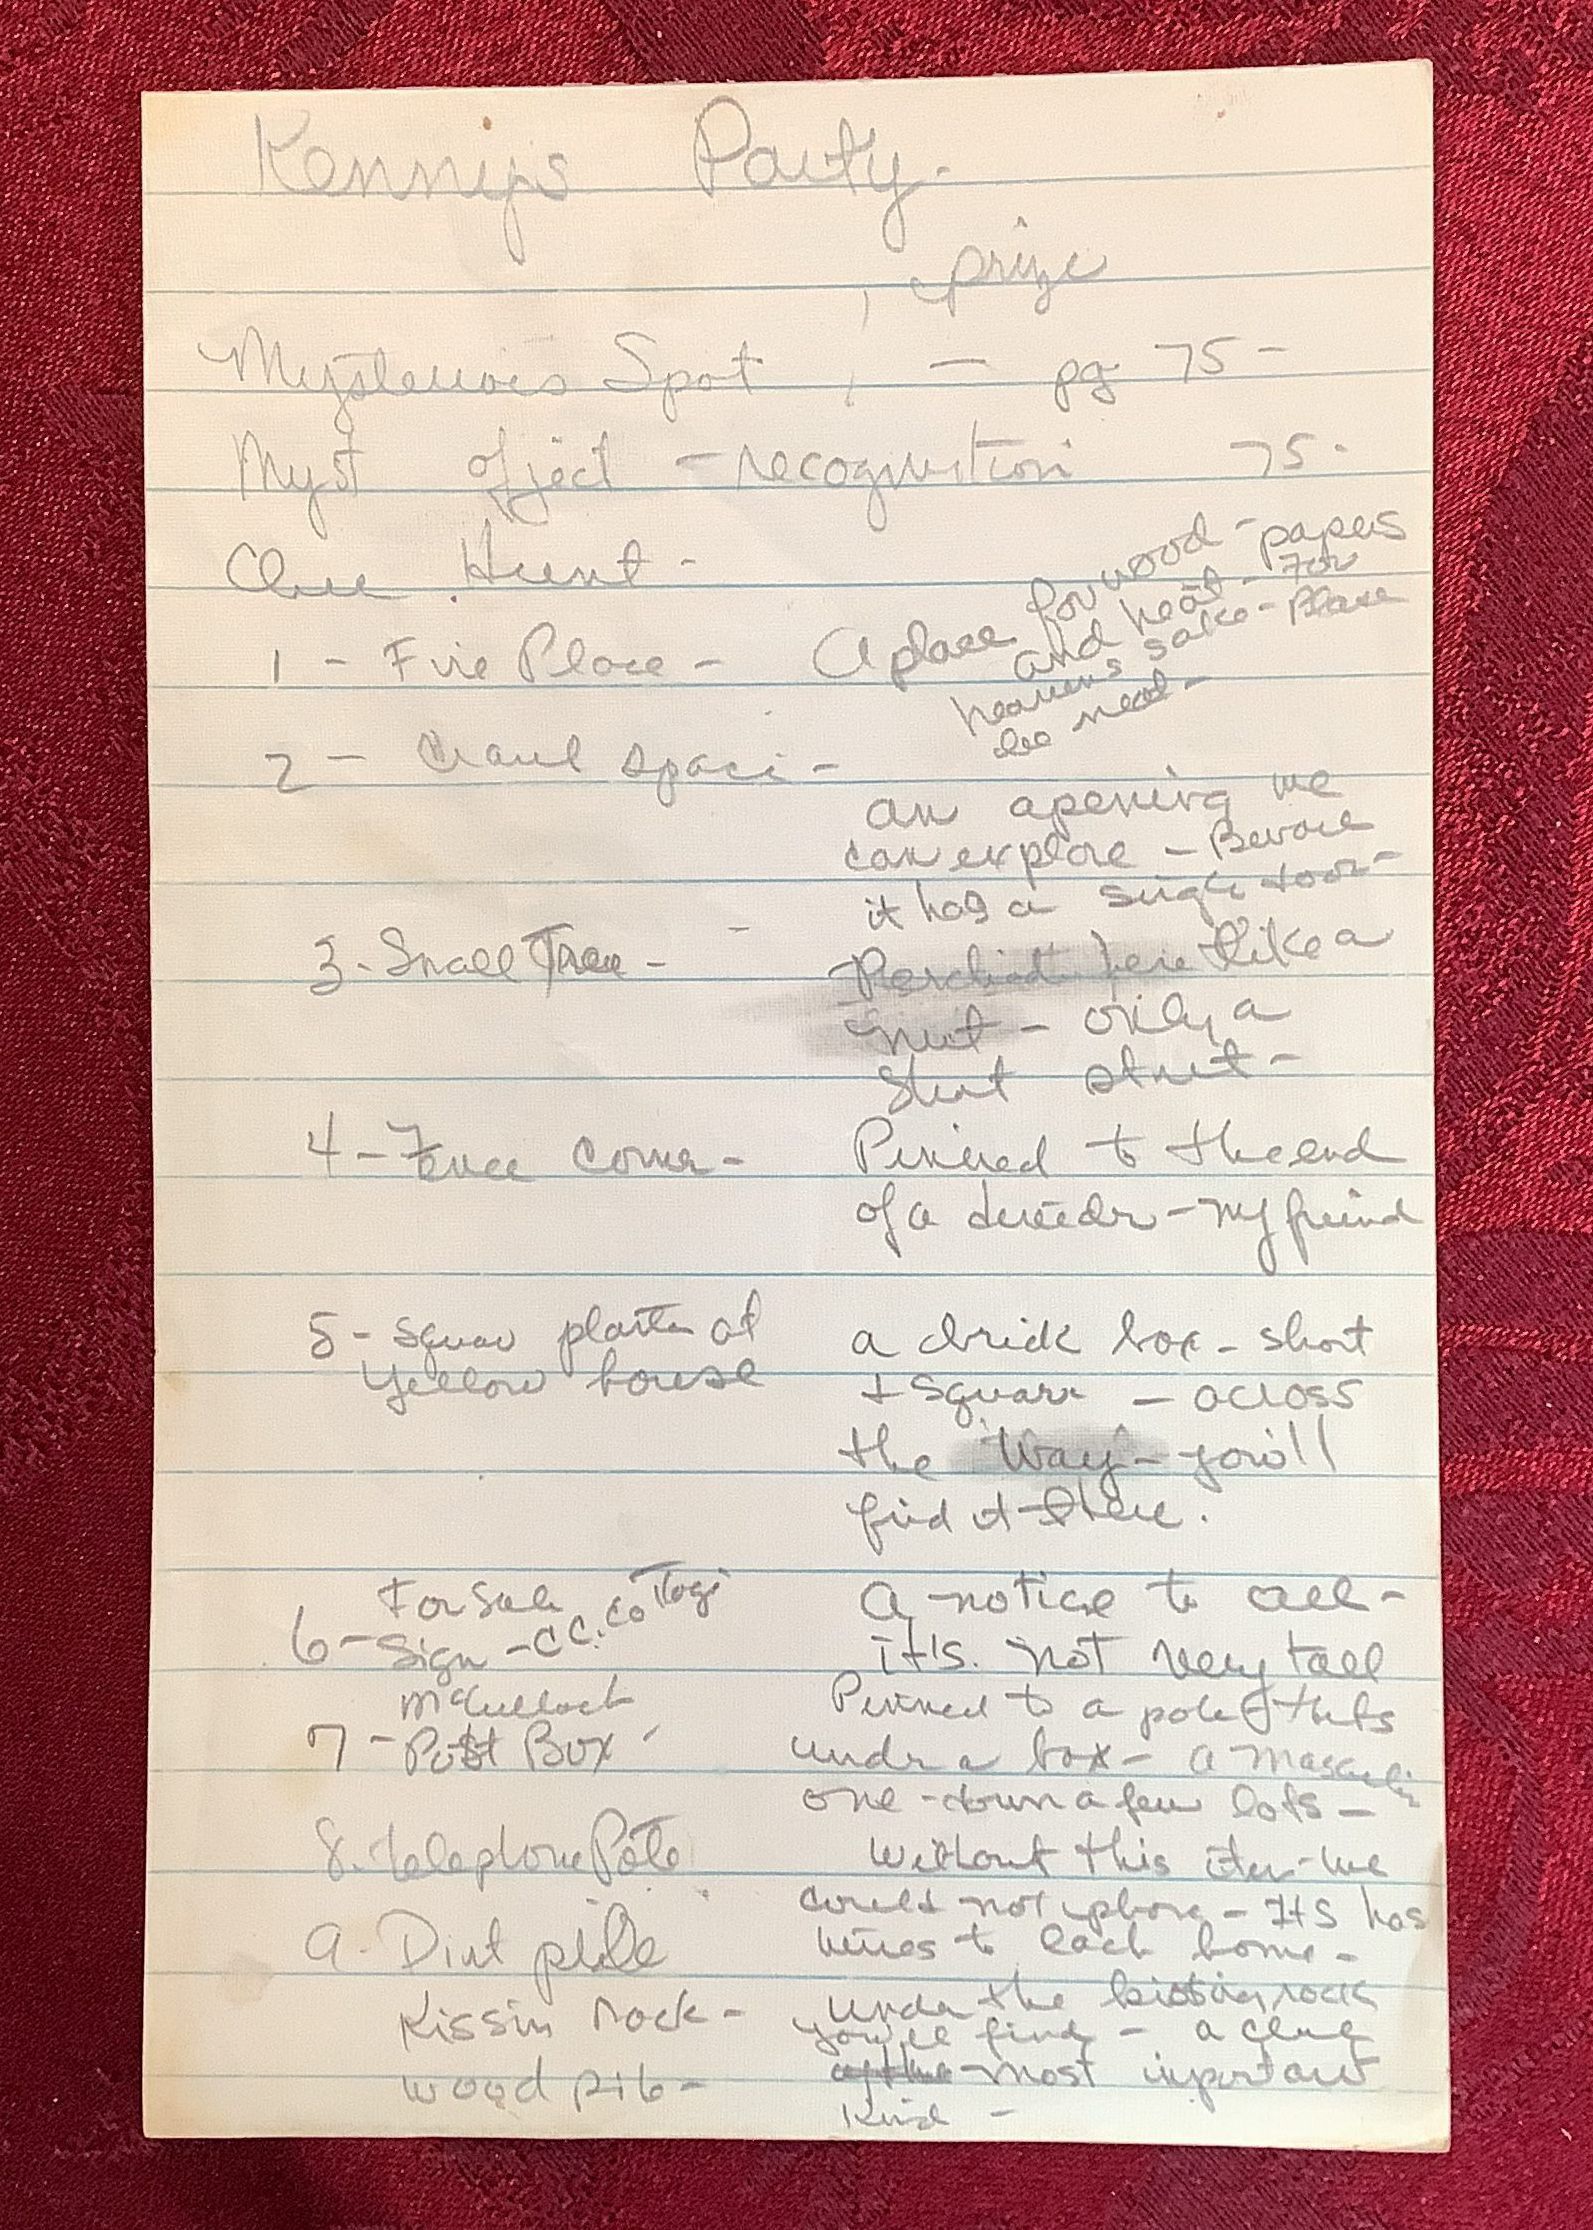 Kenny's Party.
prize
Mysterious Spot, — pg 75 -
Myst object - recognition 75.
Clue Hunt -
1 - Fire Place - A place for wood - papers
and heat - For
heavens sake - Please
be neat -
2 - Crawl space -
an opening we
can explore - Beware
it has a single door -
3 - Small Tree - Perched here like a
nut - only a
short
4 - Fence corner - Pinned to the end
of a - my friend
5 - square planter at a brick box - short
yellow house + square - across
the way - you'll
find it there.
For Sale A notice to all -
6 - Sign - C C. Co it's. not very tall
McCulloch Pinned to a pole thats
7 - Post Box - under a box - a
one - down a few lots -
8. telephone Pole without this item - we
could not phone - Its has
9. Dirt pile wires to each home -
Kissin rock - under the kissing rock
you'll find - a clue
wood pile - most important
kind -